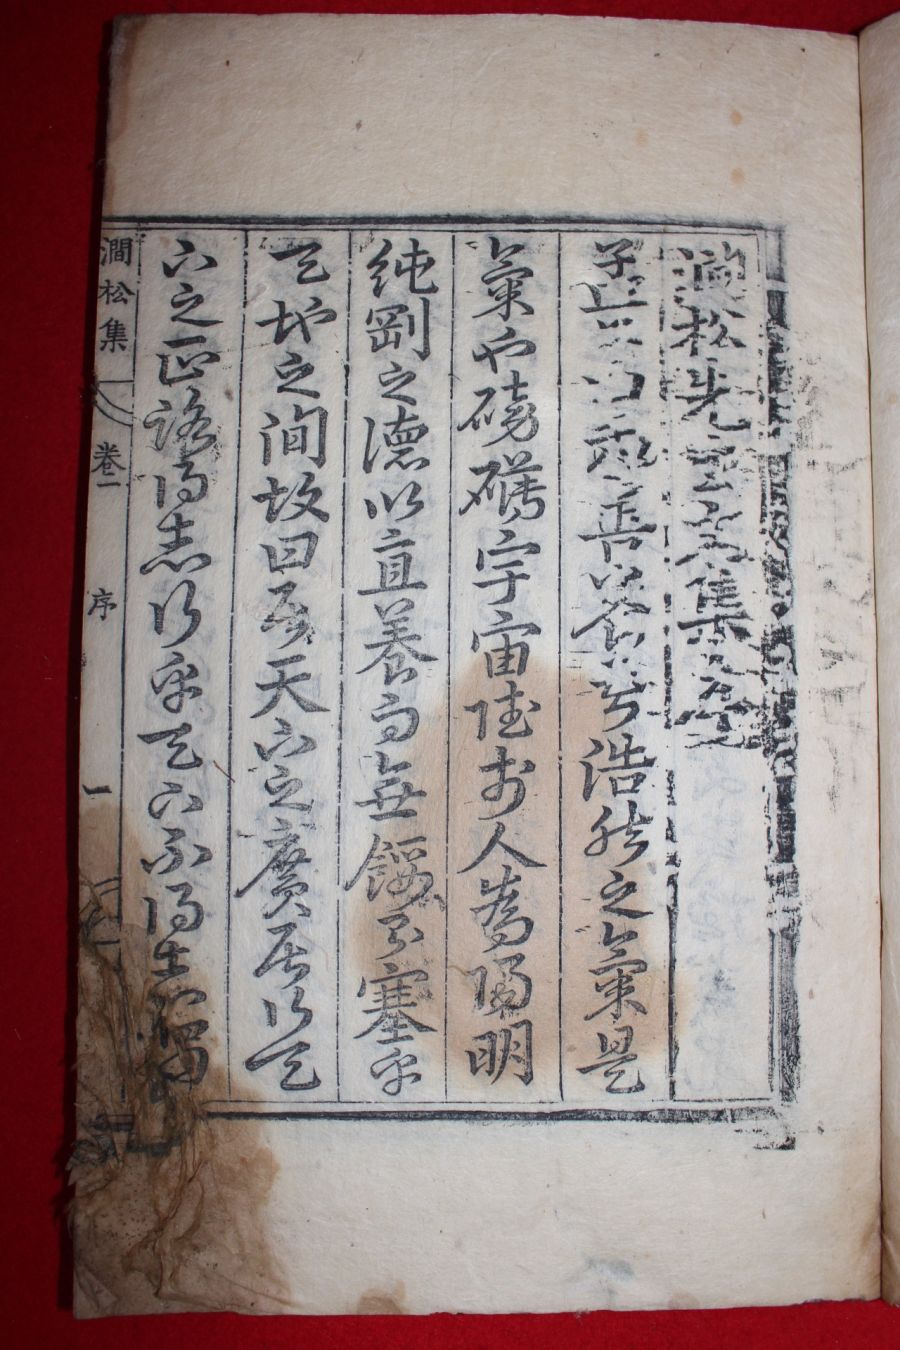 澗松先生文集序
子曰我善養吾浩然之氣是
氣也磅礴宇宙陸於人為陽明
純剛之德以直養而無餒則塞乎
天地之間故曰居天下之廣居行天
下之正路得志行乎天下不得志獨
澗松集
卷一
序
一